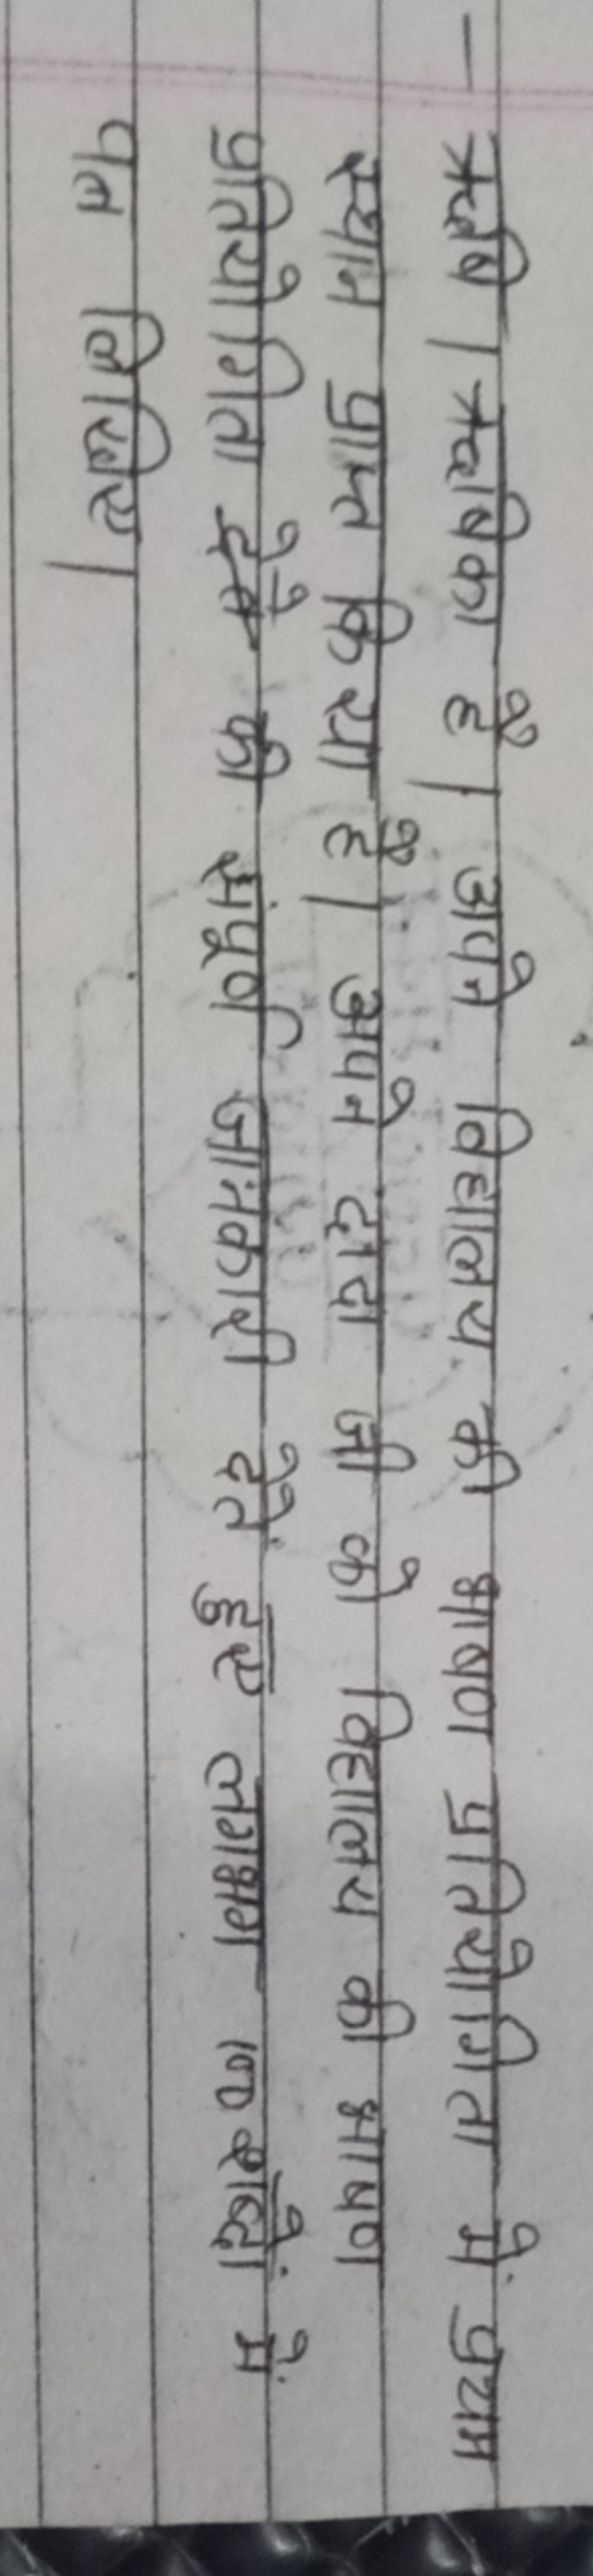 – ऋषि / ऋषिका है / अपने विद्यालय की भाषण प्रतियोगिता में प्रथम
स्थान प्राप्त किया है / अपने दादा जी को विद्यालय की भाषण
प्रतियोगिता की संपूर्ण जानकारी देते हुए लगभग 100 शब्दों में
पत्र लिखिए /